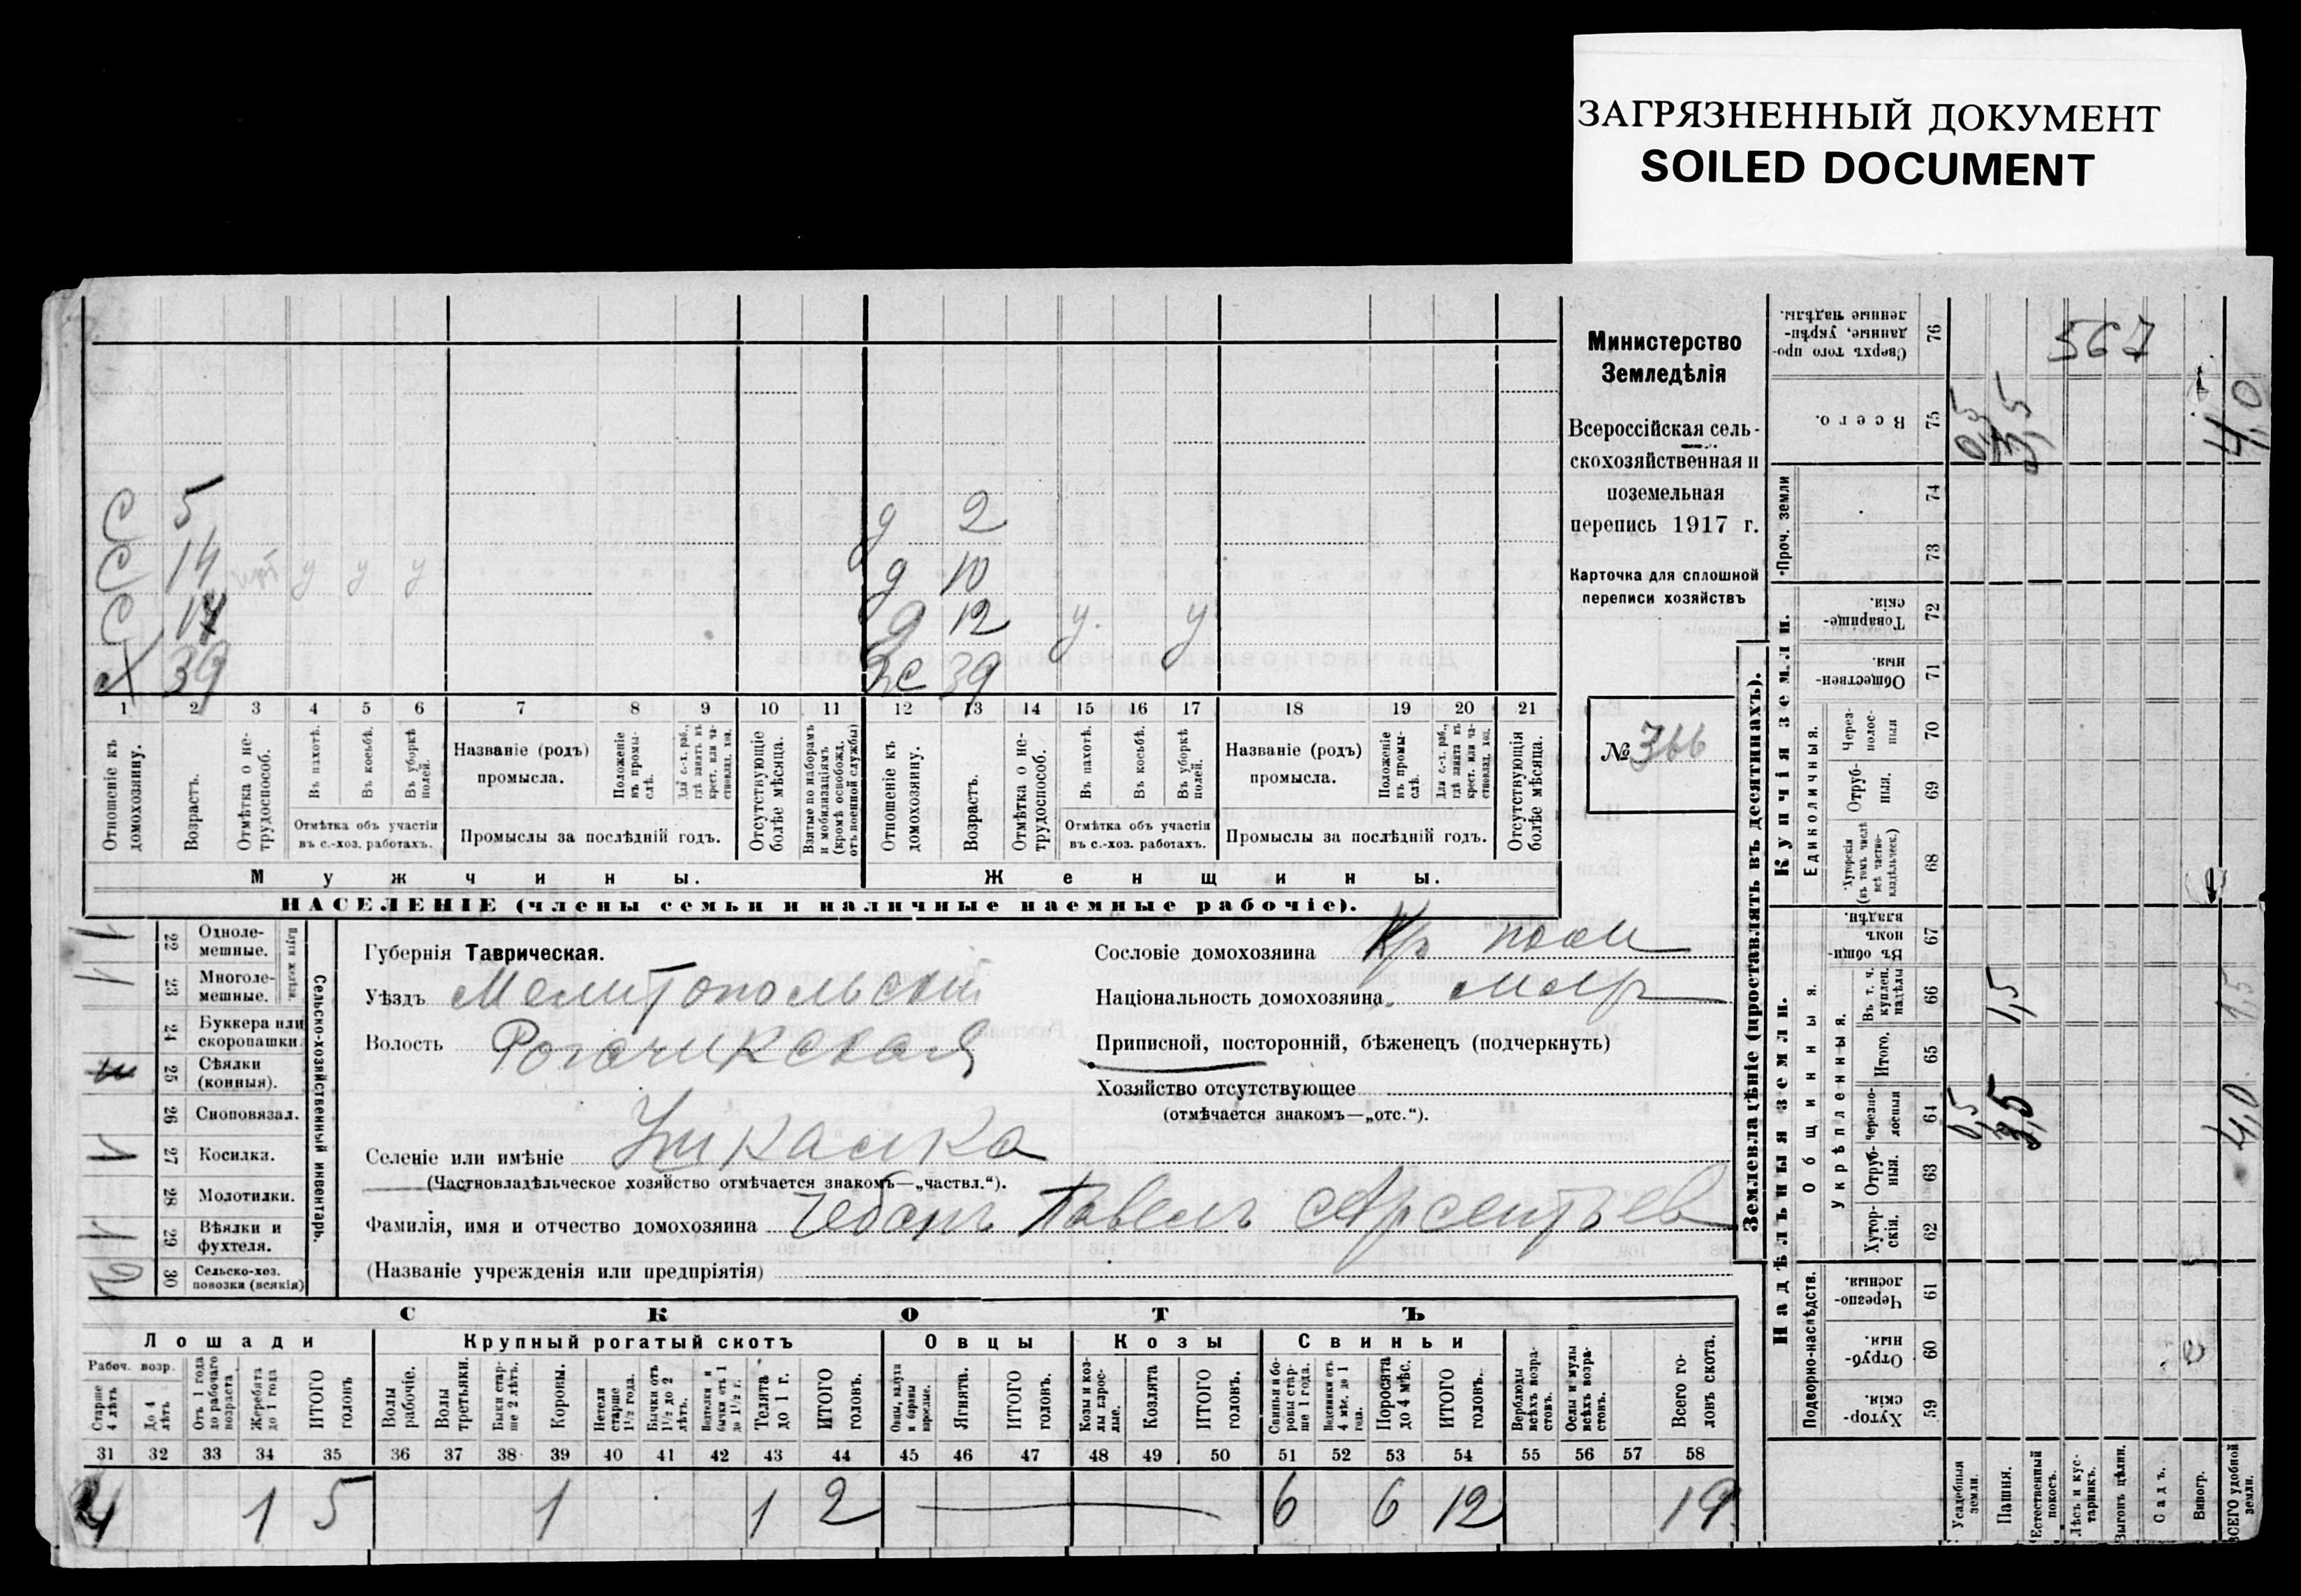 ЗАГРЯЗНЕННЫЙ ДОКУМЕНТ
SOILED DOCUMENT
С 5 д 2
С 14 у у у д 10
С д 12 у. у
х 39 39
1 2 3 4 5 6 7 8 9 10 11 12 13 14 15 16 17 18 19 20 21
Отношеніе къ домохозяину.
Возрастъ.
Отмѣтка о нетрудоспособ.
Въ пахотѣ.
Въ косьбѣ.
Въ уборкѣ полей.
Отмѣтка объ участіи
въ с.-хоз. работахъ.
Названіе (родъ)
промысла.
Положеніе въ промыслѣ.
Для с.-х. раб., гдѣ занятъ въ крест. или частновлад. хоз.
Промыслы за послѣдній годъ.
Отсутствующіе болѣе мѣсяца.
Взятые по наборамъ и мобилизаціямъ (кромѣ освобожд. отъ военной службы)
Отношеніе къ домохозяину.
Возрастъ.
Отмѣтка о нетрудоспособ.
Въ пахотѣ.
Въ косьбѣ.
Въ уборкѣ полей.
Отмѣтка объ участіи
въ с.-хоз. работахъ.
Названіе (родъ)
промысла.
Положеніе въ промыслѣ.
Для с.-х. раб., гдѣ занята въ крест. или частновлад. хоз.
Промыслы за послѣдній годъ.
Отсутствующія болѣе мѣсяца.
Мужчины. Женщины.
НАСЕЛЕНІЕ (члены семьи и наличные наемные рабочіе).
Министерство
Земледѣлія
Всероссійская сель-
скохозяйственная и
поземельная
перепись 1917 г.
Карточка для сплошной
переписи хозяйствъ
№ 366
22 Одноле-
мешные.
23 Многоле-
мешные.
24 Буккера или
скоропашки.
25 Сѣялки
(конныя).
26 Сноповязал.
27 Косилки.
28 Молотилки.
29 Вѣялки и
фухтеля.
30 Сельско-хоз.
повозки (всякія)
Плуги желѣзн.
Сельско-хозяйственный инвентарь.
Губернія Таврическая.
Уѣздъ Мелитопольскій
Волость Рогачикская
Селеніе или имѣніе
(Частновладѣльческое хозяйство отмѣчается знакомъ—„частвл.“).
Фамилія, имя и отчество домохозяина Чебанъ Павелъ Арсентьев
(Названіе учрежденія или предпріятія)
Сословіе домохозяина Кр
Національность домохозяина
Приписной, посторонній, бѣженецъ (подчеркнуть)
Хозяйство отсутствующее
(отмѣчается знакомъ—„отс.“).
СКОТЪ
Лошади Крупный рогатый скотъ Овцы Козы Свиньи
Рабоч. возр.
Старше 4 лѣтъ
До 4 лѣтъ
Отъ 1 года до рабочаго возраста
Жеребята до 1 года
ИТОГО головъ
Волы рабочіе.
Волы третьяки.
Быки старше 2 лѣтъ.
Коровы.
Нетели старше 1½ года.
Бычки отъ 1½ до 2 лѣтъ.
Подтелки и бычки отъ 1 до 1½ г.
Телята до 1 г.
ИТОГО головъ.
Овцы, валухи и бараны взрослые.
Ягнята.
ИТОГО головъ.
Козы и козлы взрослые.
Козлята
ИТОГО головъ.
Свиньи и боровы старше 1 года.
Подсвинки отъ 4 мѣс. до 1 года.
Поросята до 4 мѣс.
ИТОГО головъ.
Верблюды всѣхъ возрастовъ.
Ослы и мулы всѣхъ возрастовъ.
Всего головъ скота.
31 32 33 34 35 36 37 38 39 40 41 42 43 44 45 46 47 48 49 50 51 52 53 54 55 56 57 58
4 1 5 1 1 2 6 6 12 19
Землевладѣніе (проставлять въ десятинахъ).
Надѣльныя земли. Купчія земли.
Подворно-наслѣдств.
Общинныя.
Укрѣпленныя.
Единоличныя.
Проч. земли
Хутор-
скія. 59
Отруб-
ныя. 60
Черезпо-
лосныя. 61
Хутор-
скія. 62
Отруб-
ныя. 63
Черезпо-
лосныя 64
Итого. 65
Въ т. ч. куплен. надѣлы 66
Въ общин-
номъ владѣн. 67
Хуторскія (въ томъ числѣ всѣ частновладѣльческ.) 68
Отруб-
ныя. 69
Через-
полос-
ныя 70
Обществен-
ныя. 71
Товарище-
скія. 72
73
74
Всего. 75
Сверхъ того про-
данные, укрѣп-
ленные надѣлы. 76
Усадебныя земли.
Пашня.
Естественный покосъ.
Лѣсъ и кустарникъ.
Выгонъ цѣлин.
Садъ.
Виногр.
ВСЕГО удобной земли.
567
0,5 3,5 4,0
1,5 1,5
0,5 3,5 4,0